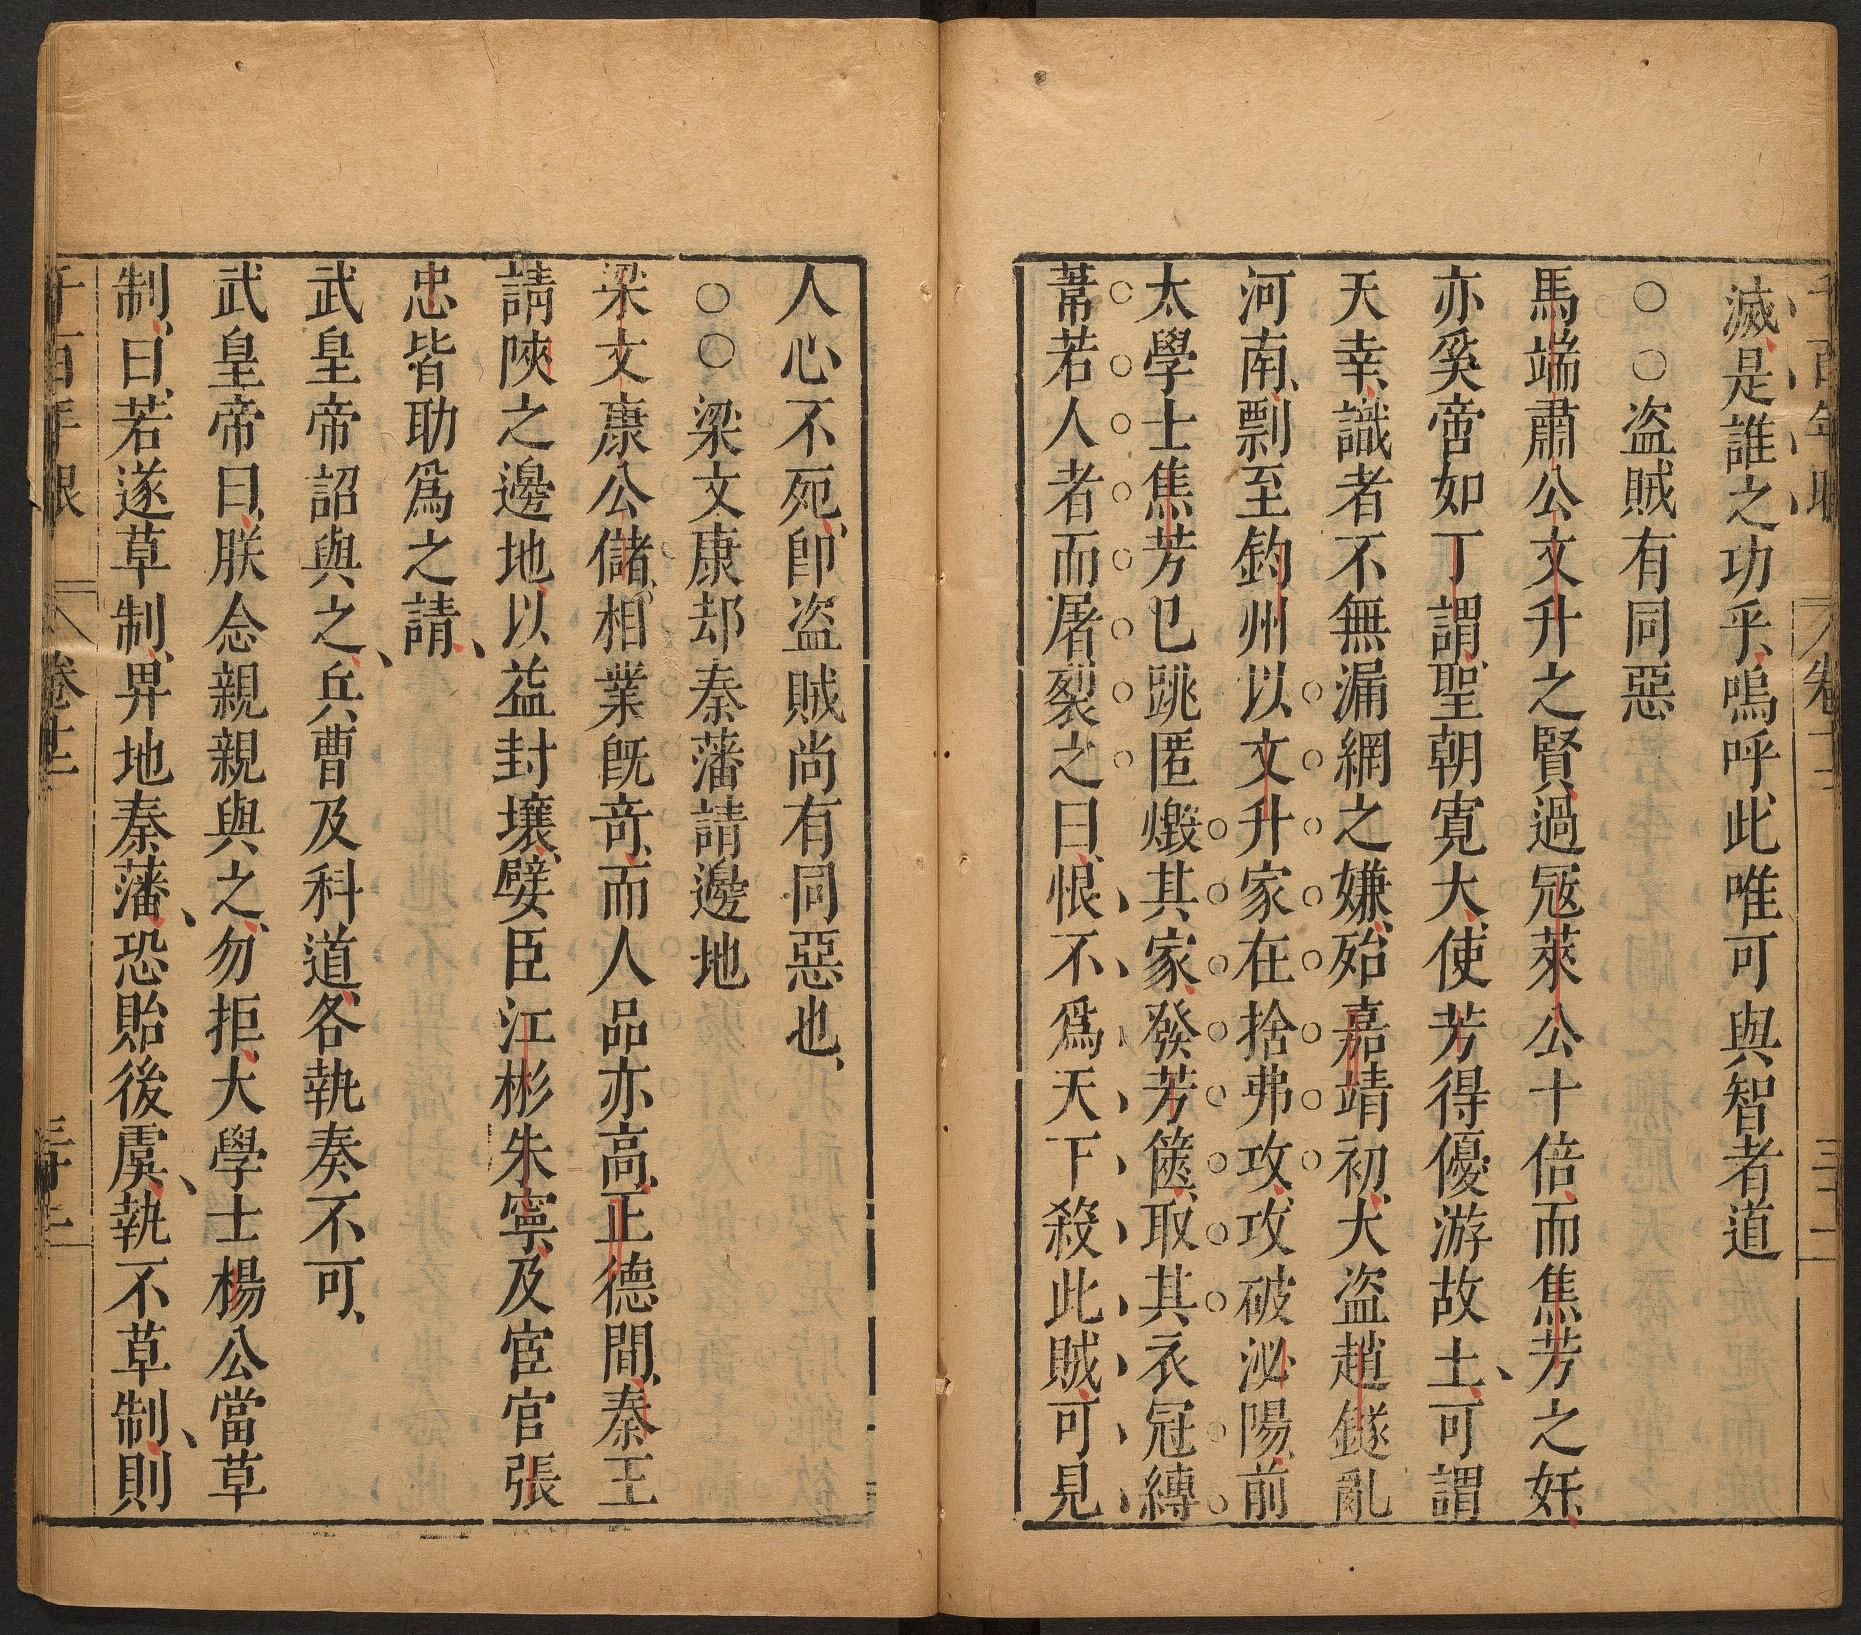 滅、是誰之功乎、嗚呼、此唯可與智者道
○○盗賊有同惡
馬端肅公文升之賢、過冦萊公十倍、而焦芳之奸、
亦奚啻如丁謂、聖朝寬大、使芳得優游故土、可謂
天幸、識者不無漏網之嫌、殆嘉靖初、大盗趙鐩亂
河南、剽至鈞州、以文升家在捨弗攻、攻破泌陽、前
太學士焦芳已跳匿燬其家、發芳篋、取其衣冠縛
蒭若人者而屠裂之曰、恨不爲天下殺此賊、可見
人心不死、卽盗賊尚有同惡也、
○○梁文康却秦藩請邊地
梁文康公儲。相業旣竒、而人品亦高、正德間、秦王
請陜之邊地、以益封壤、嬖臣江彬朱寧、及宦官張
忠皆助爲之請、
武皇帝詔與之、兵曹及科道、各執奏不可、
武皇帝曰、朕念親親與之、勿拒、大學士楊公當草
制、曰、若遂草制、畀地秦藩、恐貽後虞、執不草制、則
千百年眼
卷十二
三十二